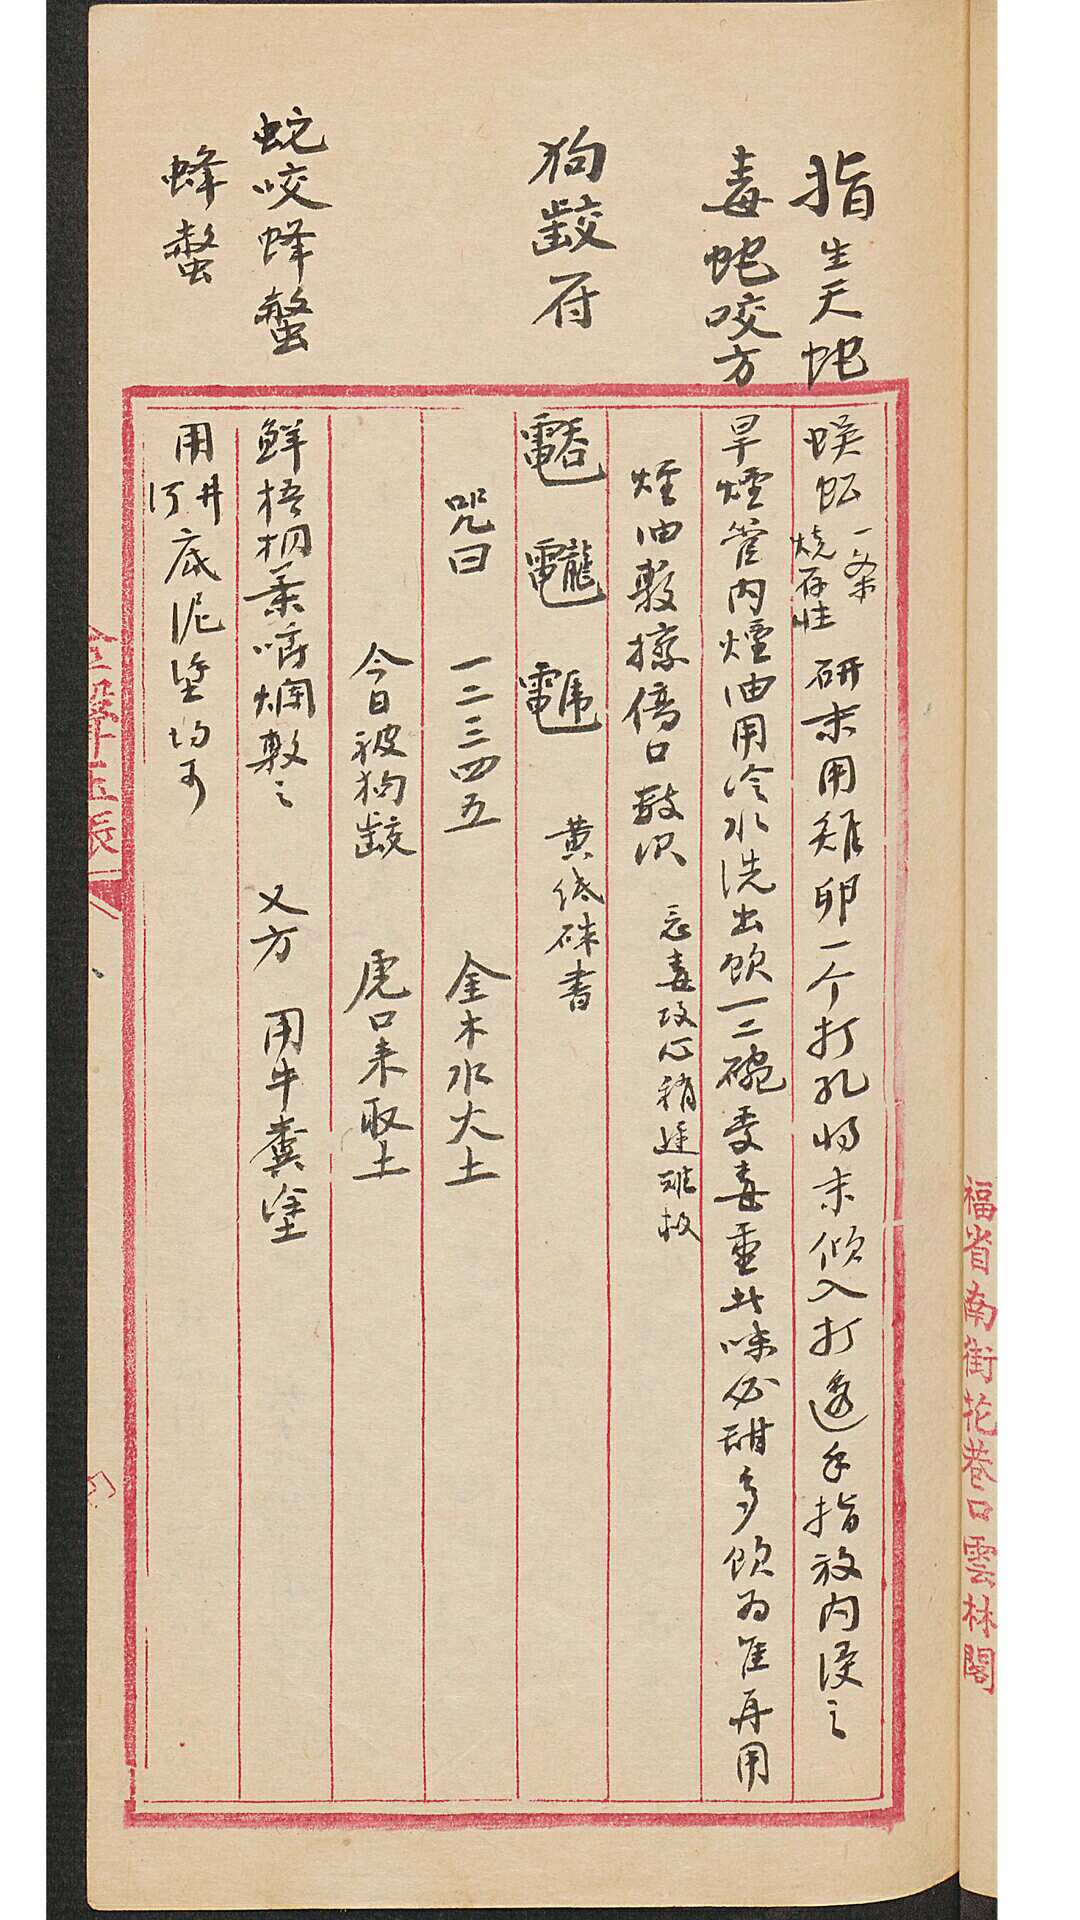 指生天蛇
蜈蚣一条燒存性 研末用雞卵一个打孔将末傾入打透手指放内浸之
毒蛇咬方
旱煙管内煙油用冷水洗出飲一二碗受毒重此味必甜多飲為佳再用
煙油敷擦傷口数次 忌毒攻心稍遲难救
狗齩符
黄纸硃書
咒曰 一二三四五 金木水火土
今日被狗齩 虎口来取土
蛇咬蜂螫
鮮梧桐葉嚼爛敷之 又方 用牛糞塗
蜂螫
用井河底泥塗均可
福省南街花巷口雲林閣